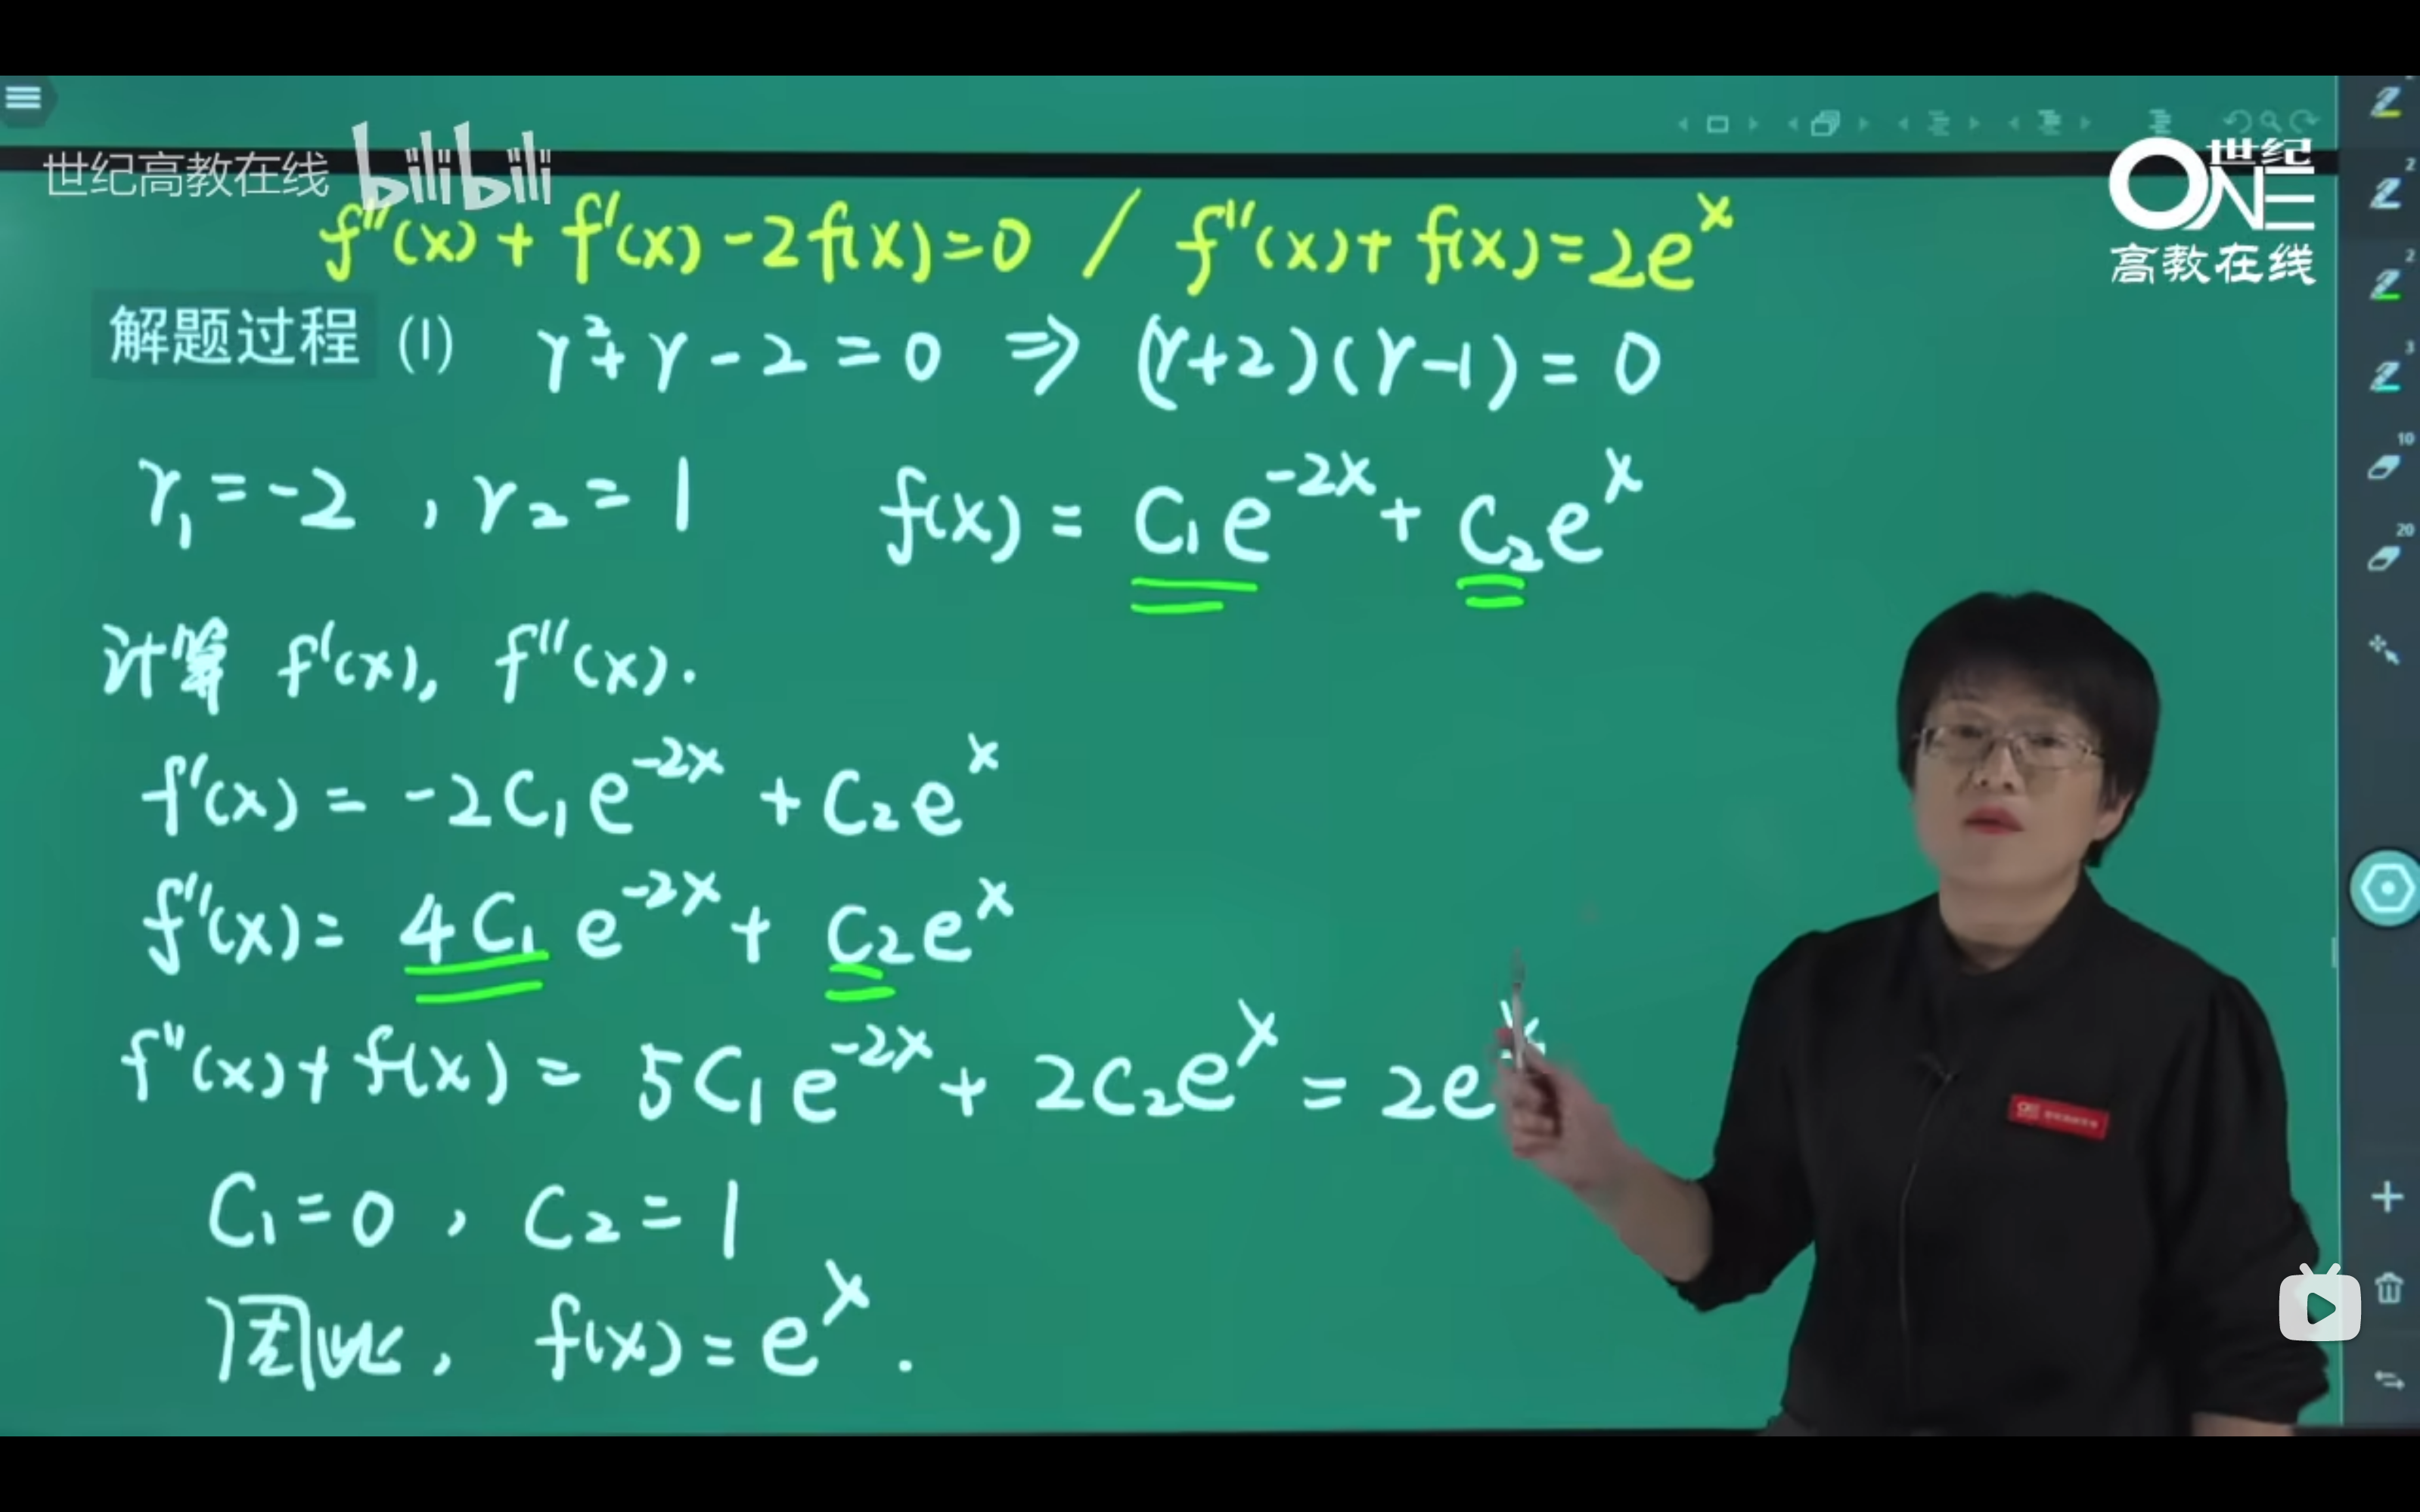 世纪高教在线 bilibili
ONE 世纪
高教在线
f''(x) + f'(x) - 2f(x) = 0 / f''(x) + f(x) = 2e^x
解题过程 (1) r²+r-2=0 ⇒ (r+2)(r-1)=0
r₁=-2, r₂=1 f(x) = C₁e^{-2x} + C₂e^x
计算 f'(x), f''(x).
f'(x) = -2C₁e^{-2x} + C₂e^x
f''(x) = 4C₁e^{-2x} + C₂e^x
f''(x)+f(x) = 5C₁e^{-2x} + 2C₂e^x = 2e^x
C₁=0, C₂=1
因此, f(x)=e^x.
2
2
2
3
10
20